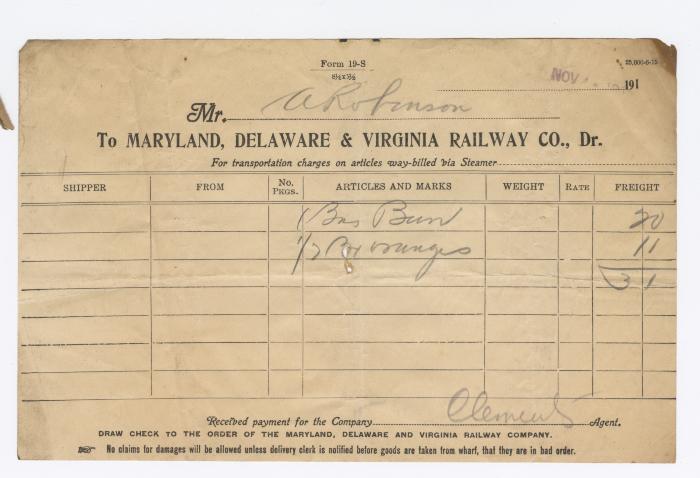 Form 19-S
8½x5½
25,000-6-15
NOV 191
Mr. A Robinson
To MARYLAND, DELAWARE & VIRGINIA RAILWAY CO., Dr.
For transportation charges on articles way-billed via Steamer
SHIPPER FROM No. PKGS. ARTICLES AND MARKS WEIGHT RATE FREIGHT
1 20
1/2 Box oranges 11
31
Received payment for the Company Clements Agent.
DRAW CHECK TO THE ORDER OF THE MARYLAND, DELAWARE AND VIRGINIA RAILWAY COMPANY.
☞ No claims for damages will be allowed unless delivery clerk is notified before goods are taken from wharf, that they are in bad order.